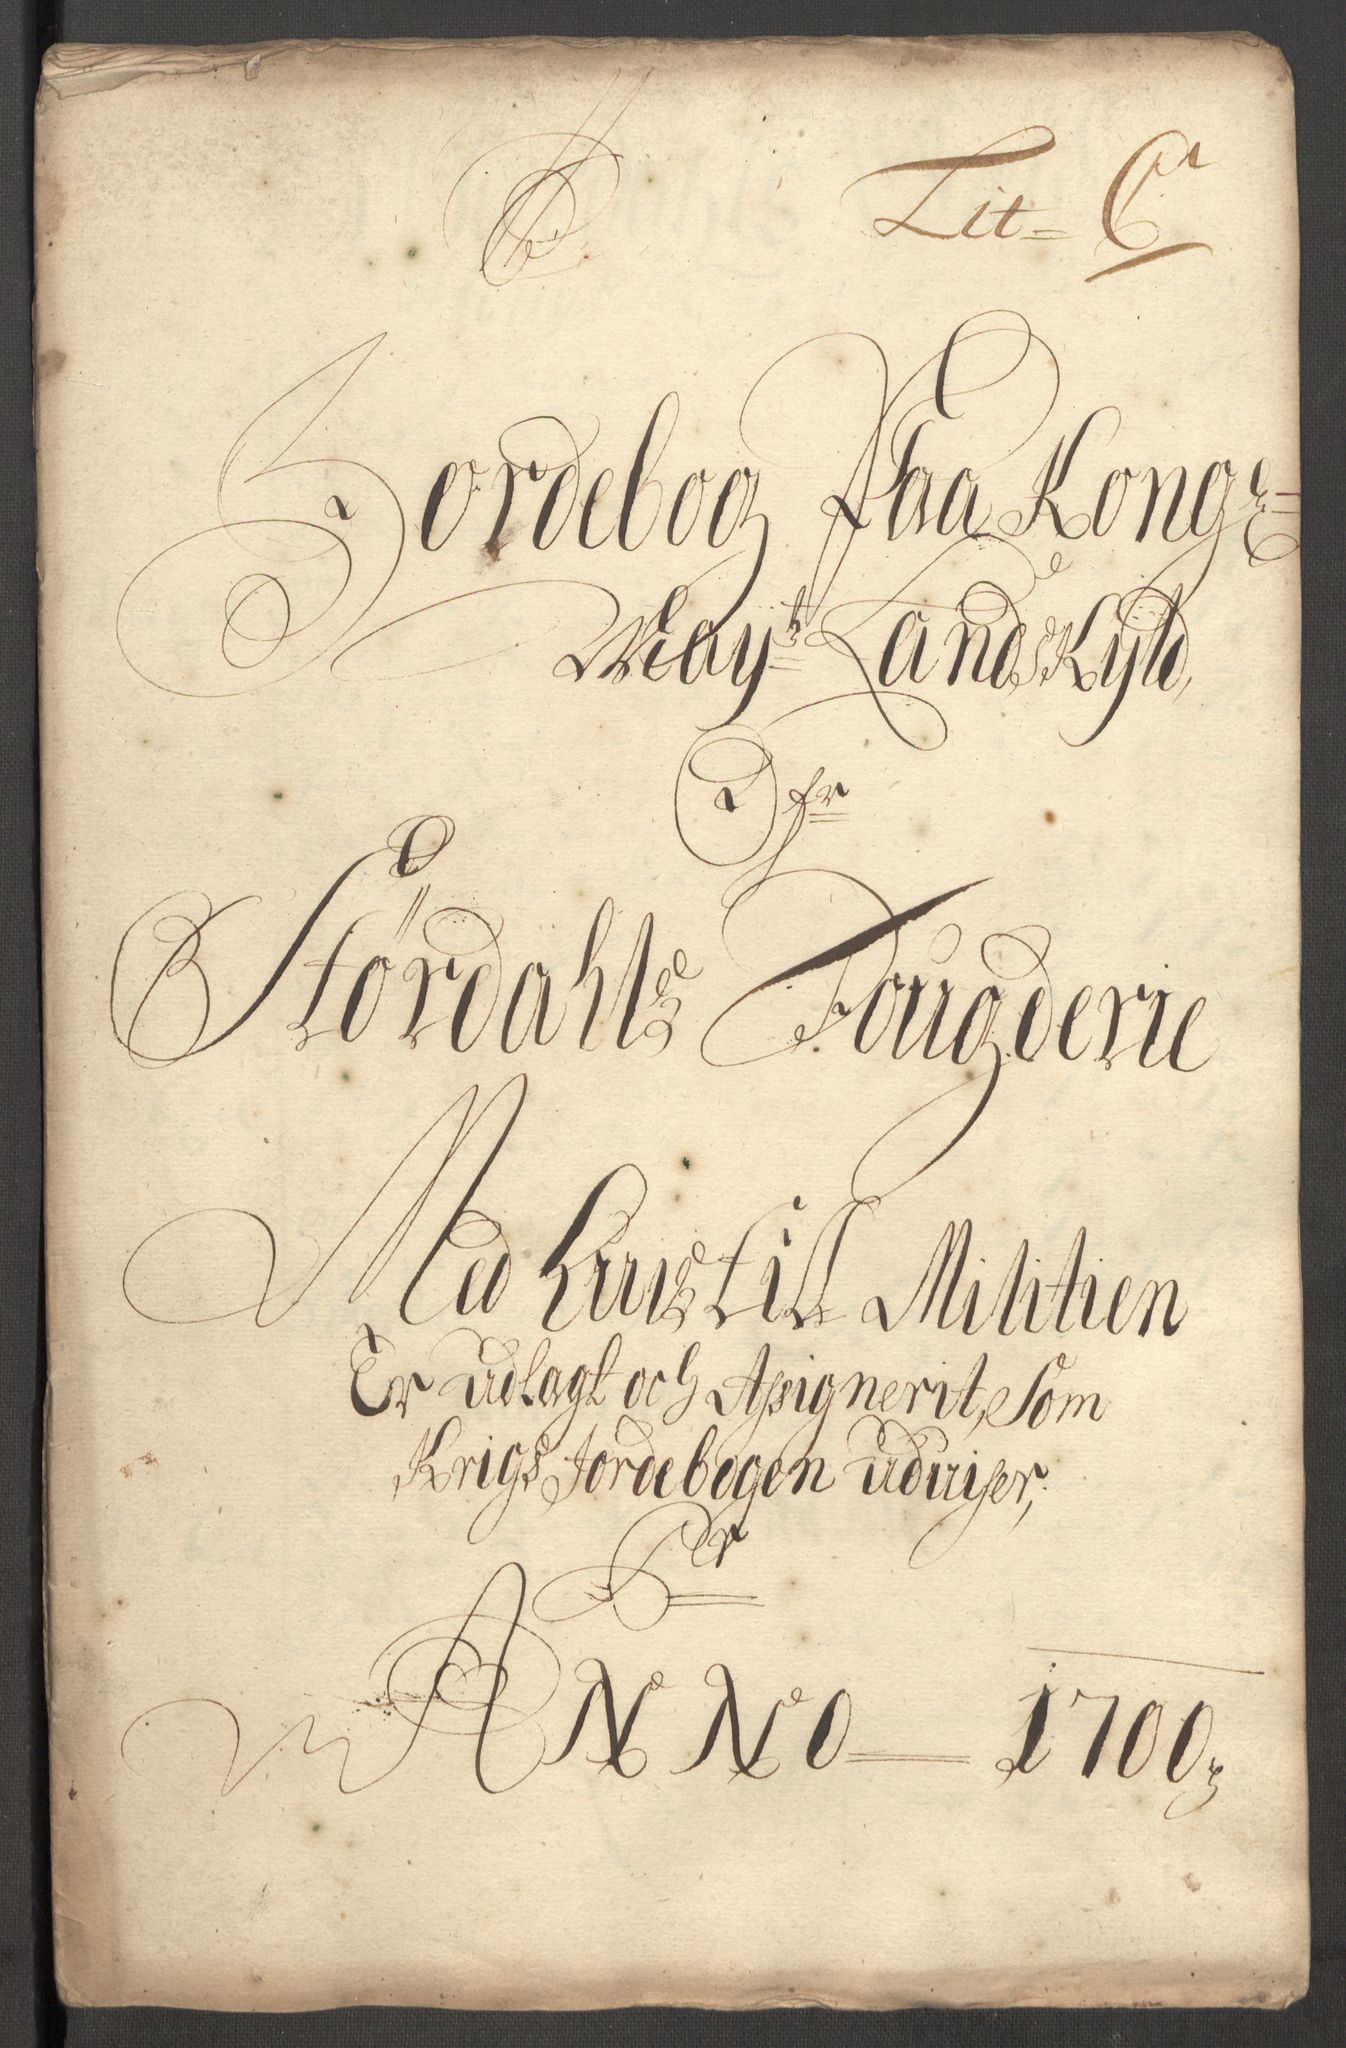 Lit= C
Jordebog Paa Kong=
May:ts Landskyld,
Stördahls Fougderie
Med huis til Militien
Er udlagt och Assignerit, Som
Krigs Jordebogen uduiser,
Pr
ANNO — 1700